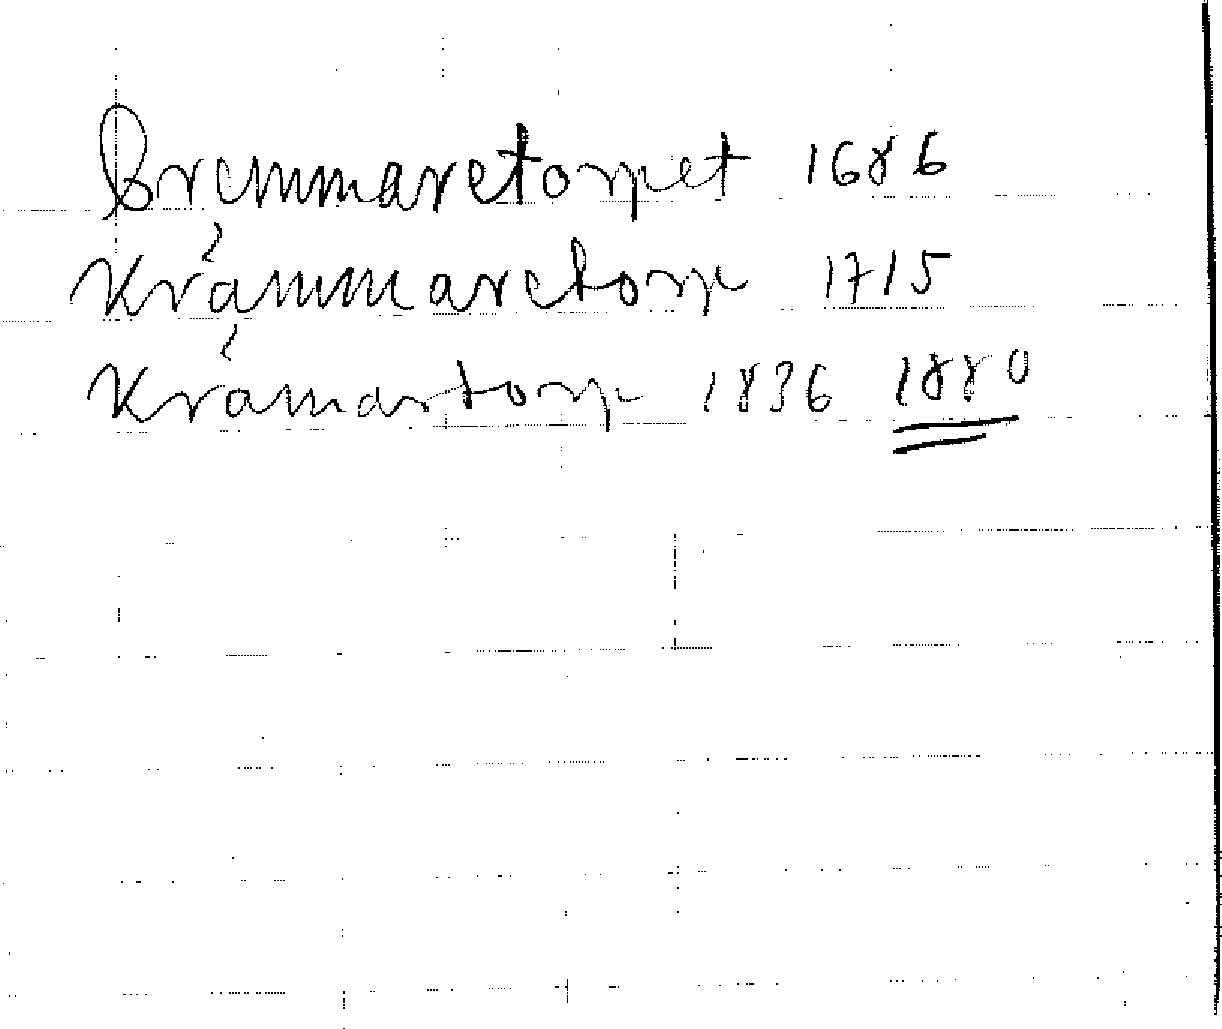 Bremmaretorpet 1686
Krämmaretorp 1715
Krämartorp 1836 1880